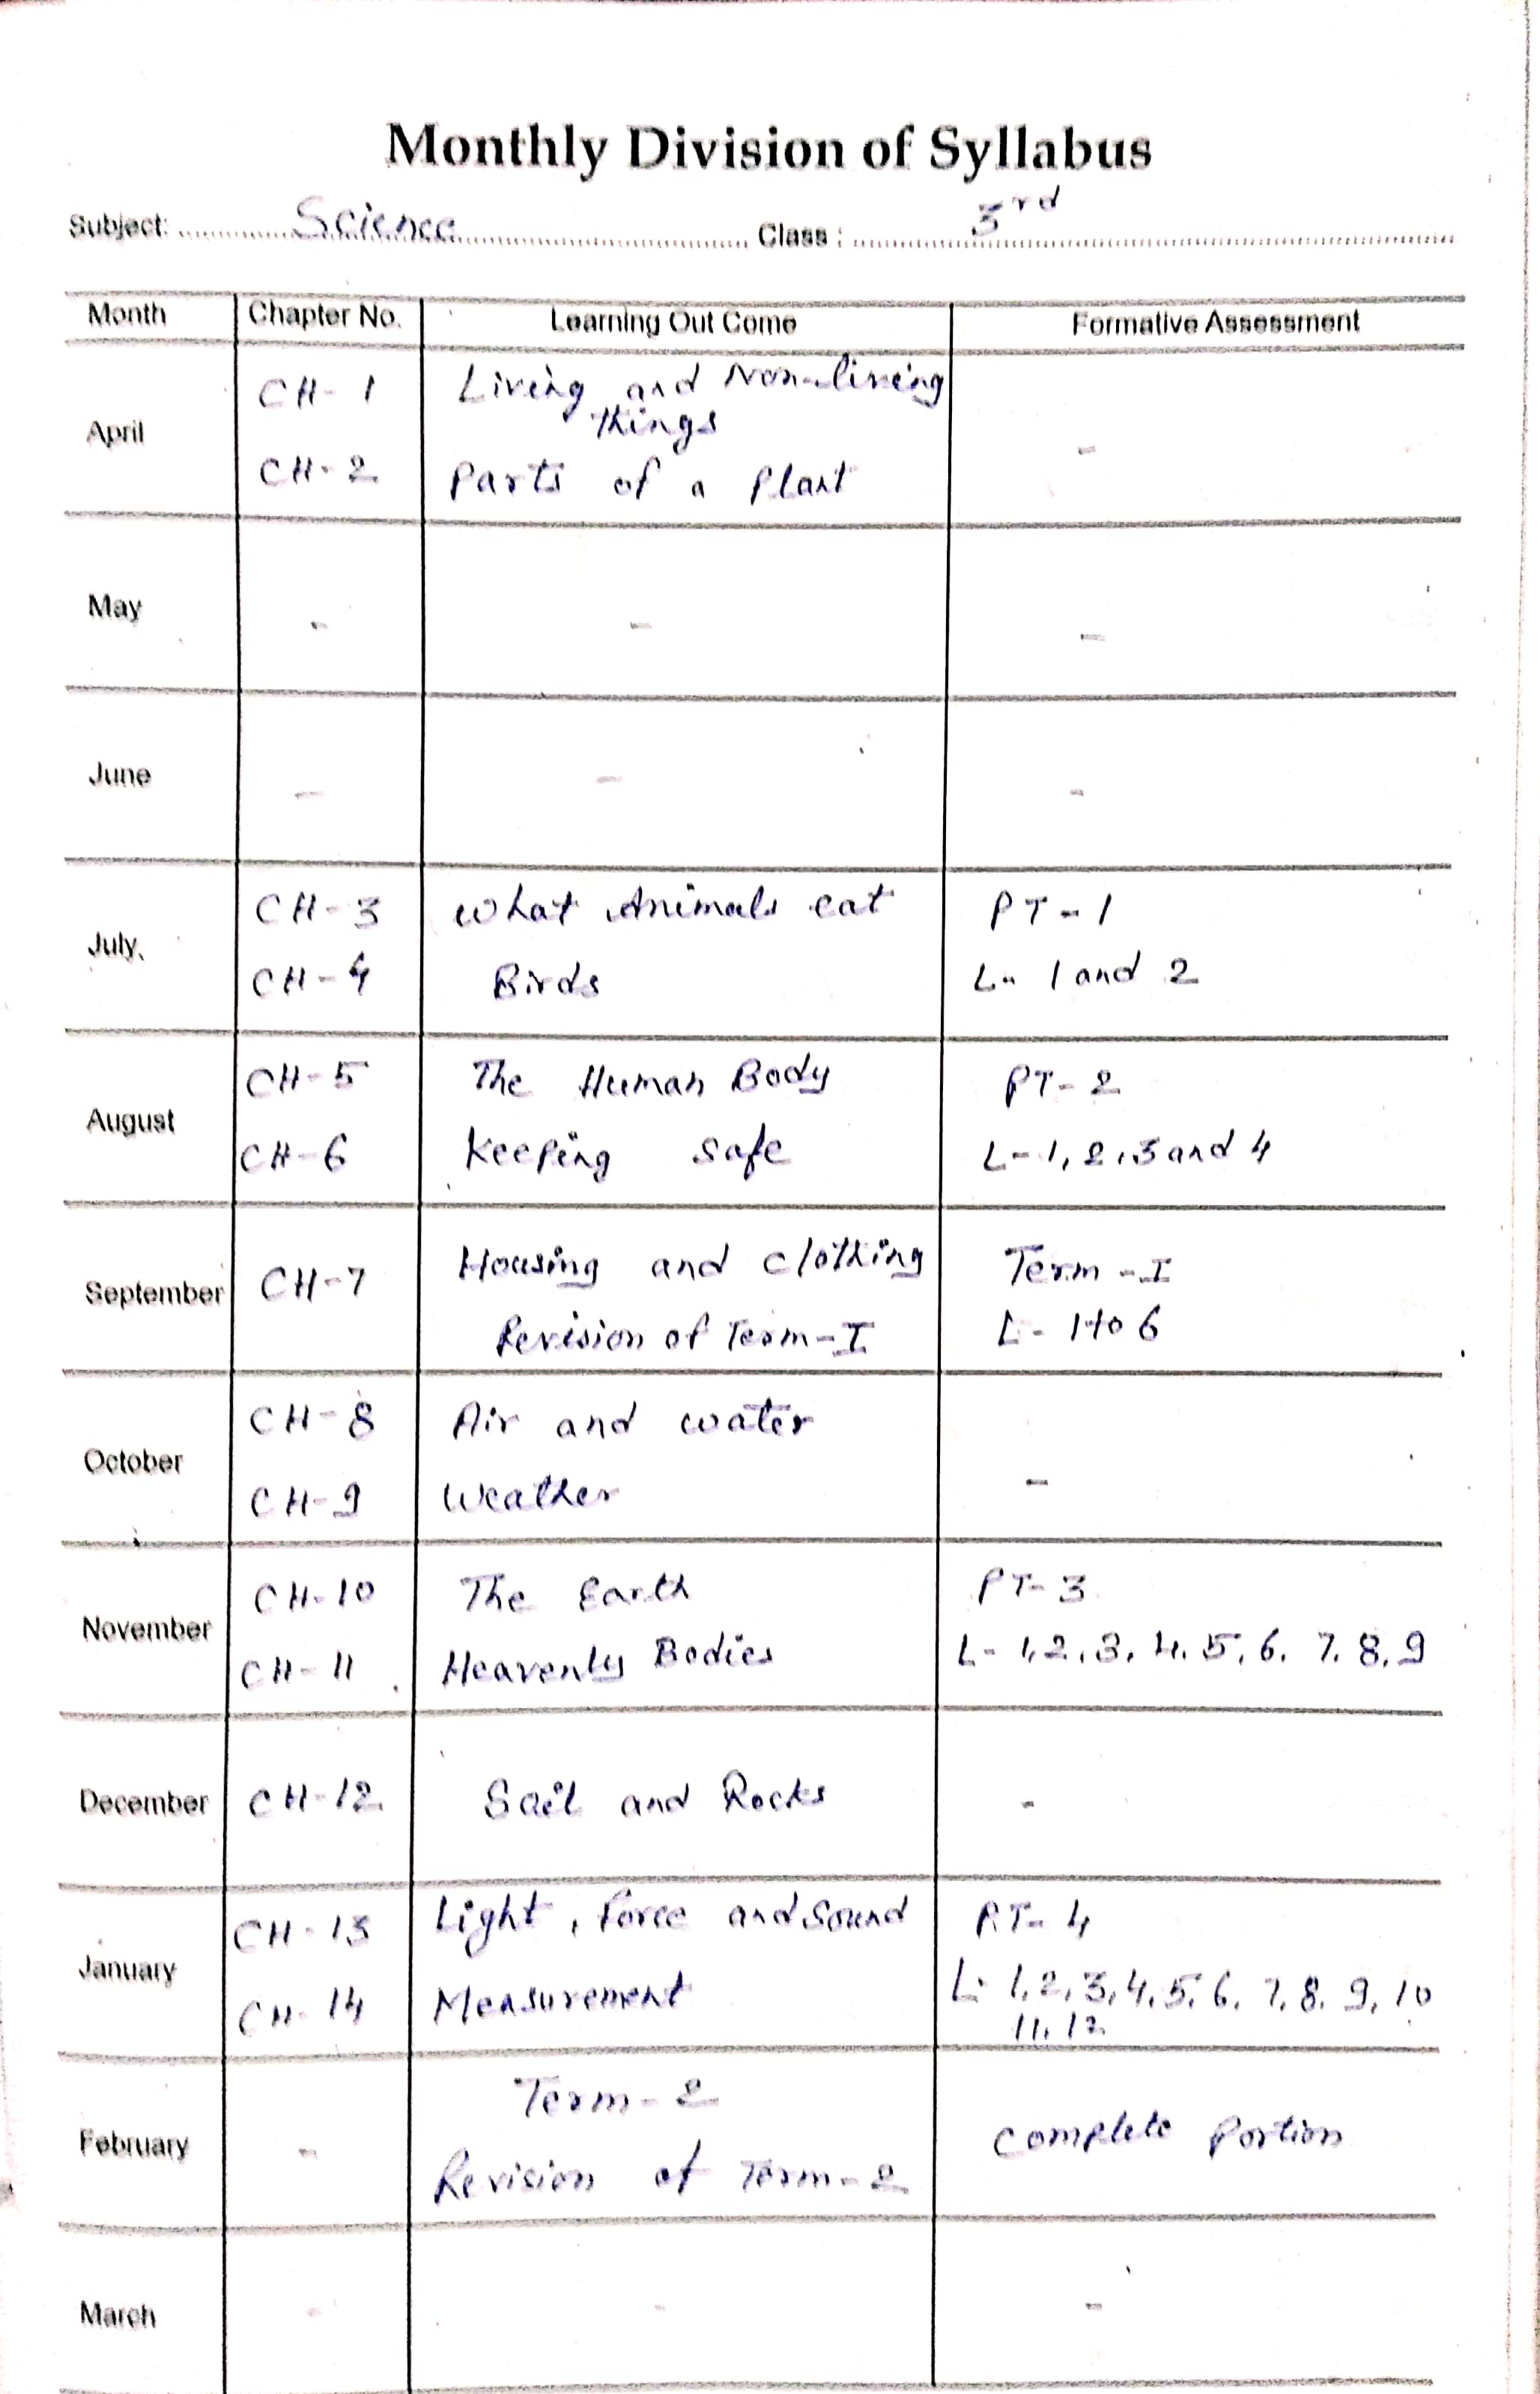 Monthly Division of Syllabus
Subject: Science Class : 3rd
Month Chapter No. Learning Out Come Formative Assessment
April
CH- 1 Living and Non-living
things
CH- 2 Parts of a Plant
-
May - - -
June - - -
July
CH-3 What Animals eat PT-1
CH-4 Birds L- 1 and 2
August
CH-5 The Human Body PT-2
CH-6 Keeping safe L-1, 2, 3 and 4
September CH-7
Housing and clothing Term-I
Revision of Term-I L- 1 to 6
October
CH-8 Air and water
CH-9 Weather
-
November
CH-10 The Earth PT-3
CH-11 Heavenly Bodies L- 1, 2, 3, 4, 5, 6, 7, 8, 9
December CH-12 Soil and Rocks -
January
CH-13 Light, force and Sound PT-4
CH-14 Measurement L- 1, 2, 3, 4, 5, 6, 7, 8, 9, 10
11, 12
February -
Term-2
Revision of Term-2
Complete Portion
March - - -